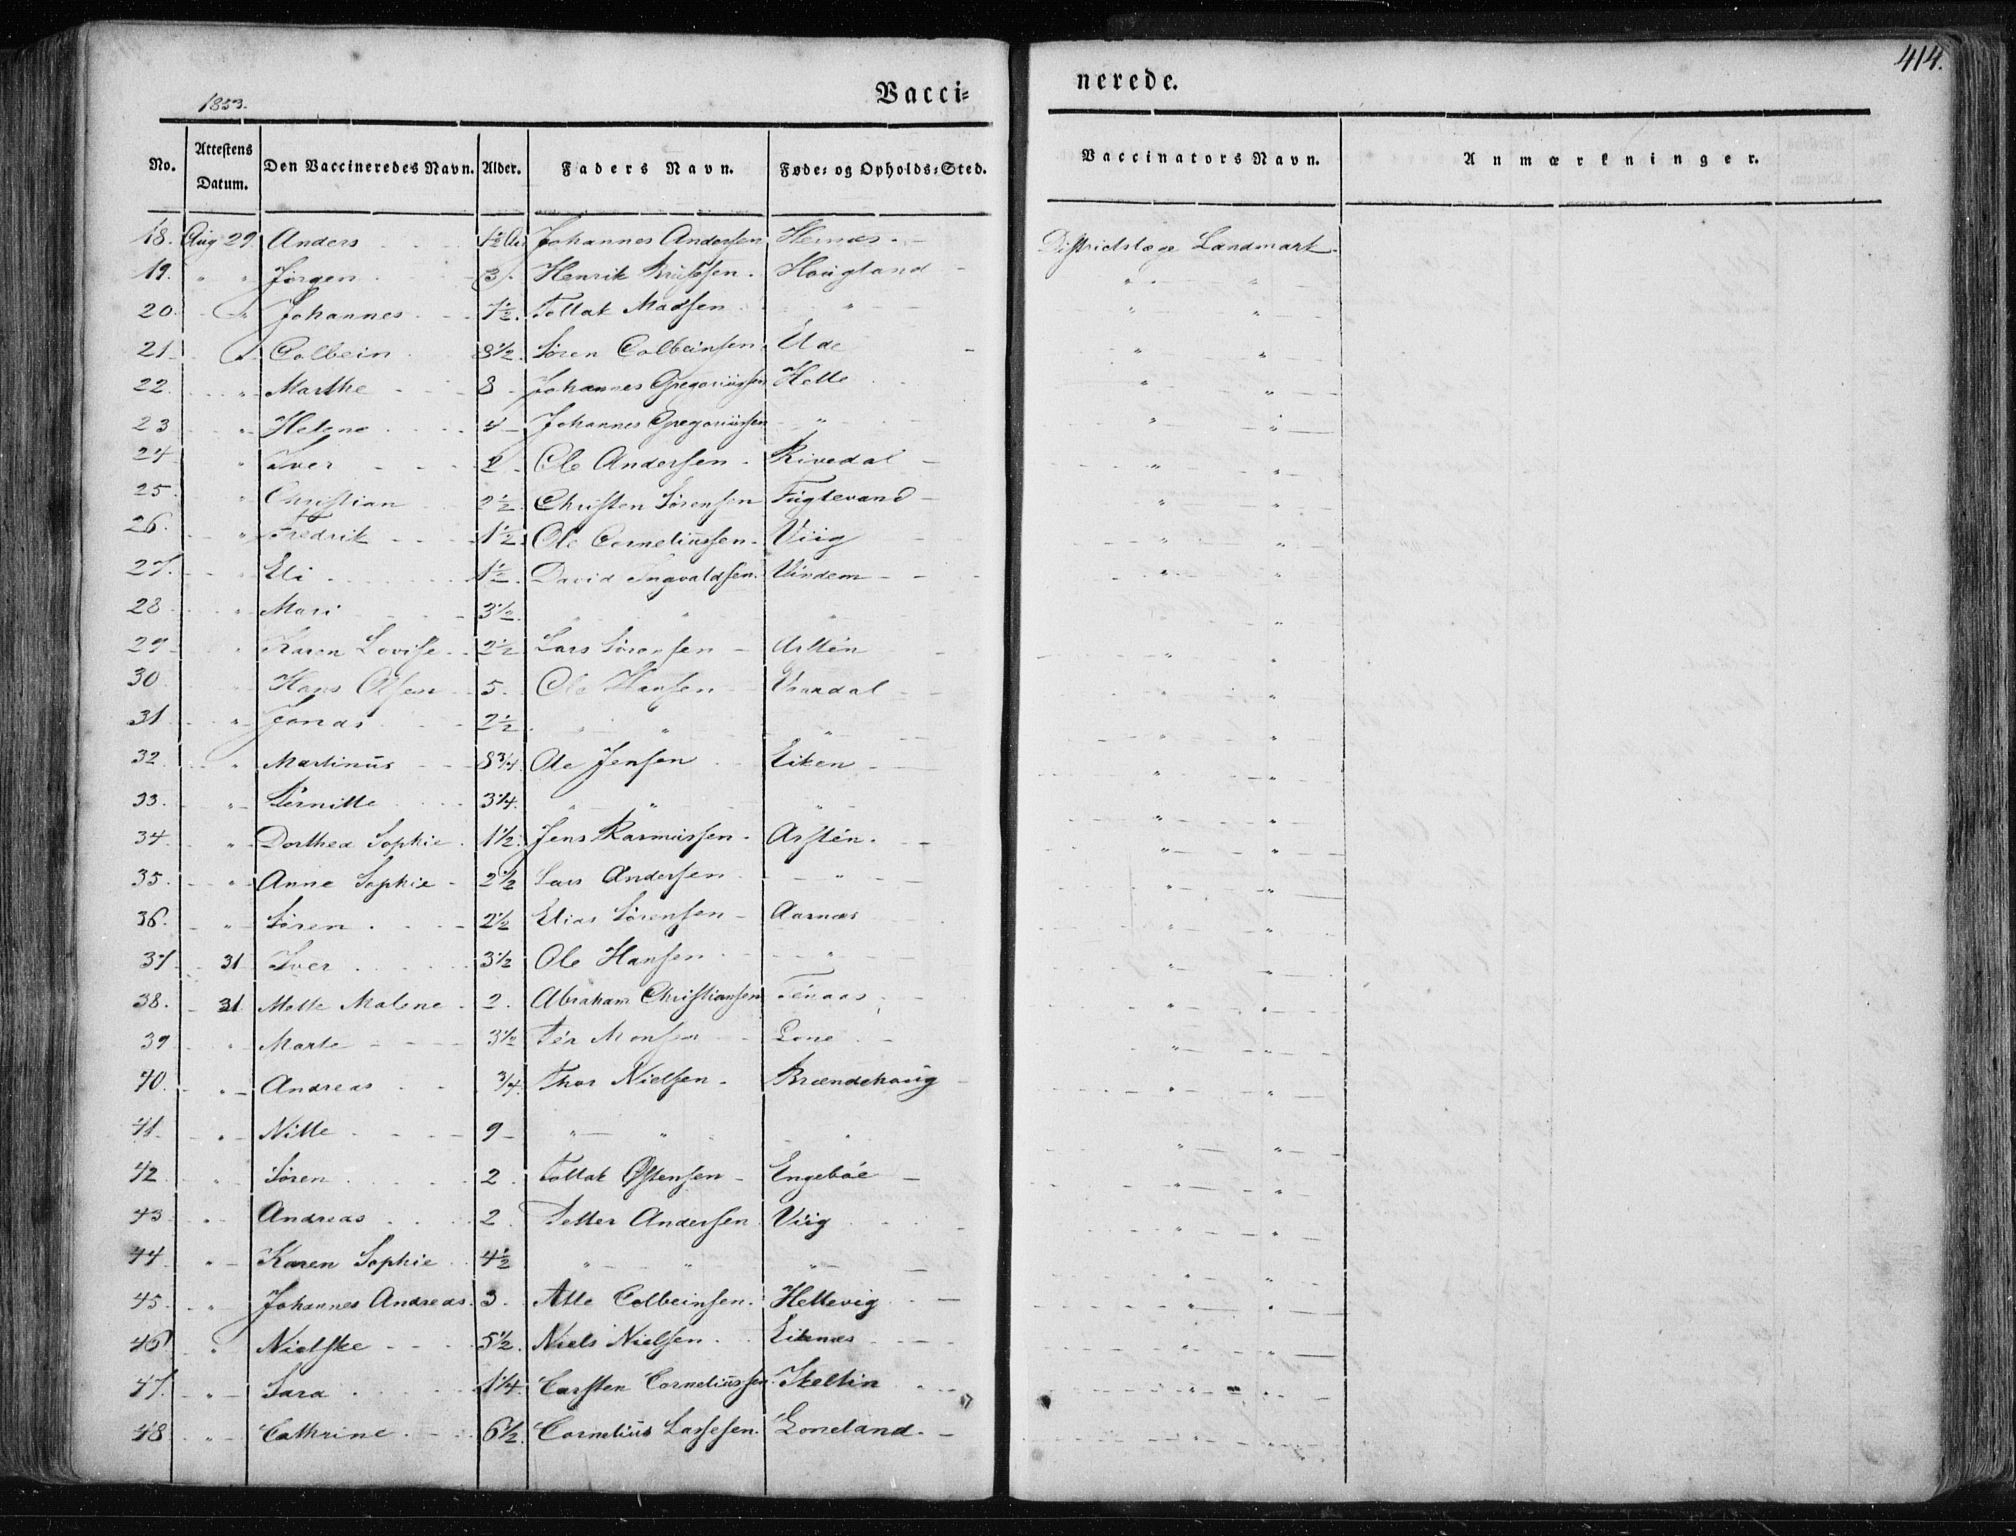 414.
1853.
Vacci-
nerede.
No. Attestens Datum. Den Vaccineredes Navn. Alder. Faders Navn. Føde- og Opholds-Sted. Vaccinators Navn. Anmærkninger.
18. Aug 29 Anders 1½ Johannes Andersen Districtslæge Landmark
19. " " Jørgen 3 Henrik Hougland " "
20. " Johannes 7½ Tollak Madsen " " "
21 " Colbein 8½ Søren Colbeinsen Elde " "
22. " Marthe 8 Johannes Gregoriussen Helle " "
23 " Helene 4 Johannes Gregoriussen " " "
24 " Iver 2 Ole Andersen Rivedal " "
25 " Christian 2½ Christen Sørensen Fuglevand " "
26. " Fredrik 1½ Ole Corneliussen Viig " "
27. " Eli 1½ David Ingvaldsen Vindem " "
28 " Mari 3½ " " " "
29 " Karen Lovise 2½ Lars Sørensen " "
30 " Hans Olsen 5 Ole Hansen Vaardal " "
31 " Jonas 2½ " " " "
32 " Martinus 8¾ Ole Jensen Eiken " "
33. " Pernille 3¼ " " " " "
34. " Dorthea Sophie 1½ Jens Rasmussen " "
35. " Anne Sophie 2½ Lars Andersen " " "
36. " Søren 2½ Elias Sørensen Aarnæs " "
37 31 Iver 3½ Ole Hansen " " "
38. 31 Mette Malene 2. Abraham Christiansen " "
39 " Marte 3½ Per Monsen Lone " "
40. " Andreas ¾ Thor Nielsen Brændehoug " "
41 " Nille 9 " " " " "
42 " Søren 2 Tollak Østensen Engebøe " "
43 " Andreas 2 Petter Andersen Viig " "
44 " Karen Sophie 4½ " " " " "
45. " Johannes Andreas 3 Atle Colbeinsen Hellevig " "
46 " Nielske 5½ Niels Nielsen Eikenæs " "
47. " Sara 1¼ Carsten Corneliussen " "
48 " Cathrine 6½ Cornelius Lassesen Loneland